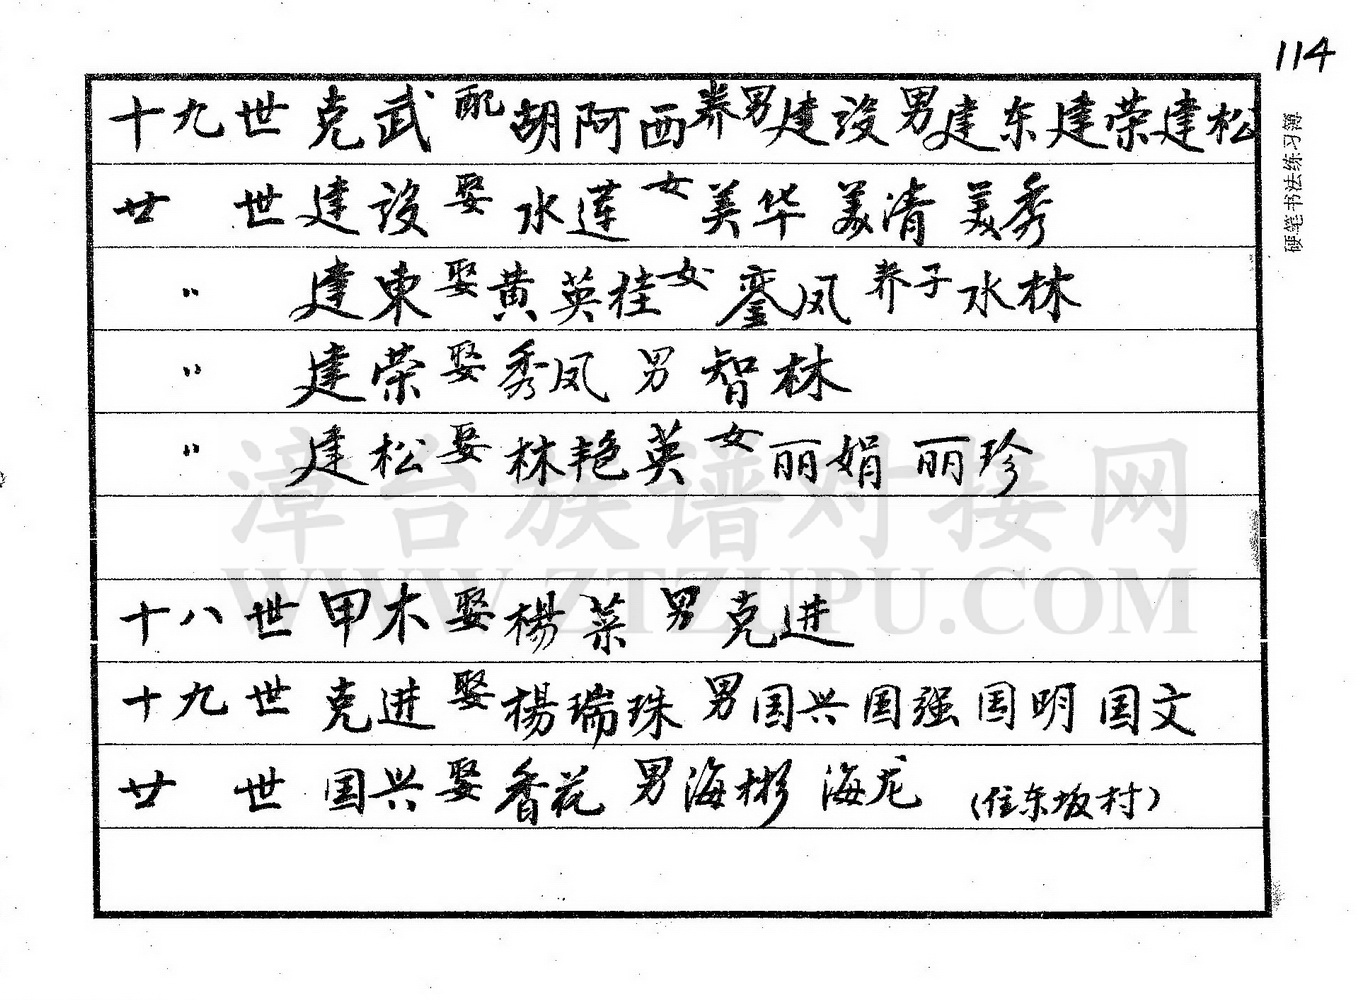 114
十九世 克武 配 胡阿西 养男 建设 男 建东 建荣 建松
廿 世 建设 娶 水莲 女 美华 美清 美秀
〃 建東 娶 黄英桂 女 銮凤 养子 水林
〃 建荣 娶 秀凤 男 智林
〃 建松 娶 林艳英 女 丽娟 丽珍
十八世 甲木 娶 楊菜 男 克进
十九世 克进 娶 楊瑞珠 男 国兴 国强 国明 国文
廿 世 国兴 娶 香花 男 海彬 海龙 (住东坂村)
硬笔书法练习簿
漳台族谱对接网
WWW.ZTZUPU.COM